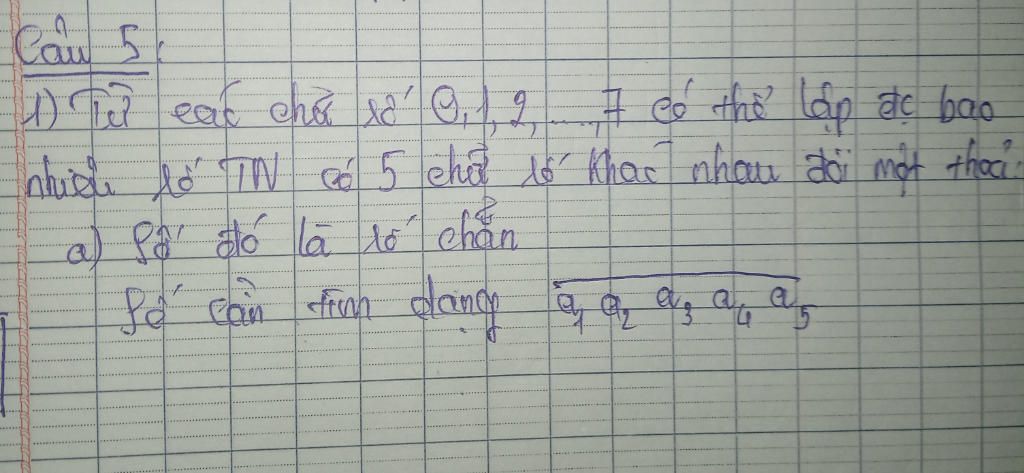 Câu 5:
1) Từ các chữ số 0, 1, 2, ..., 7 có thể lập đc bao
nhiêu số TN có 5 chữ số khác nhau đôi một thoả:
a) Số đó là số chẵn
Số cần tìm dạng a₁ a₂ a₃ a₄ a₅